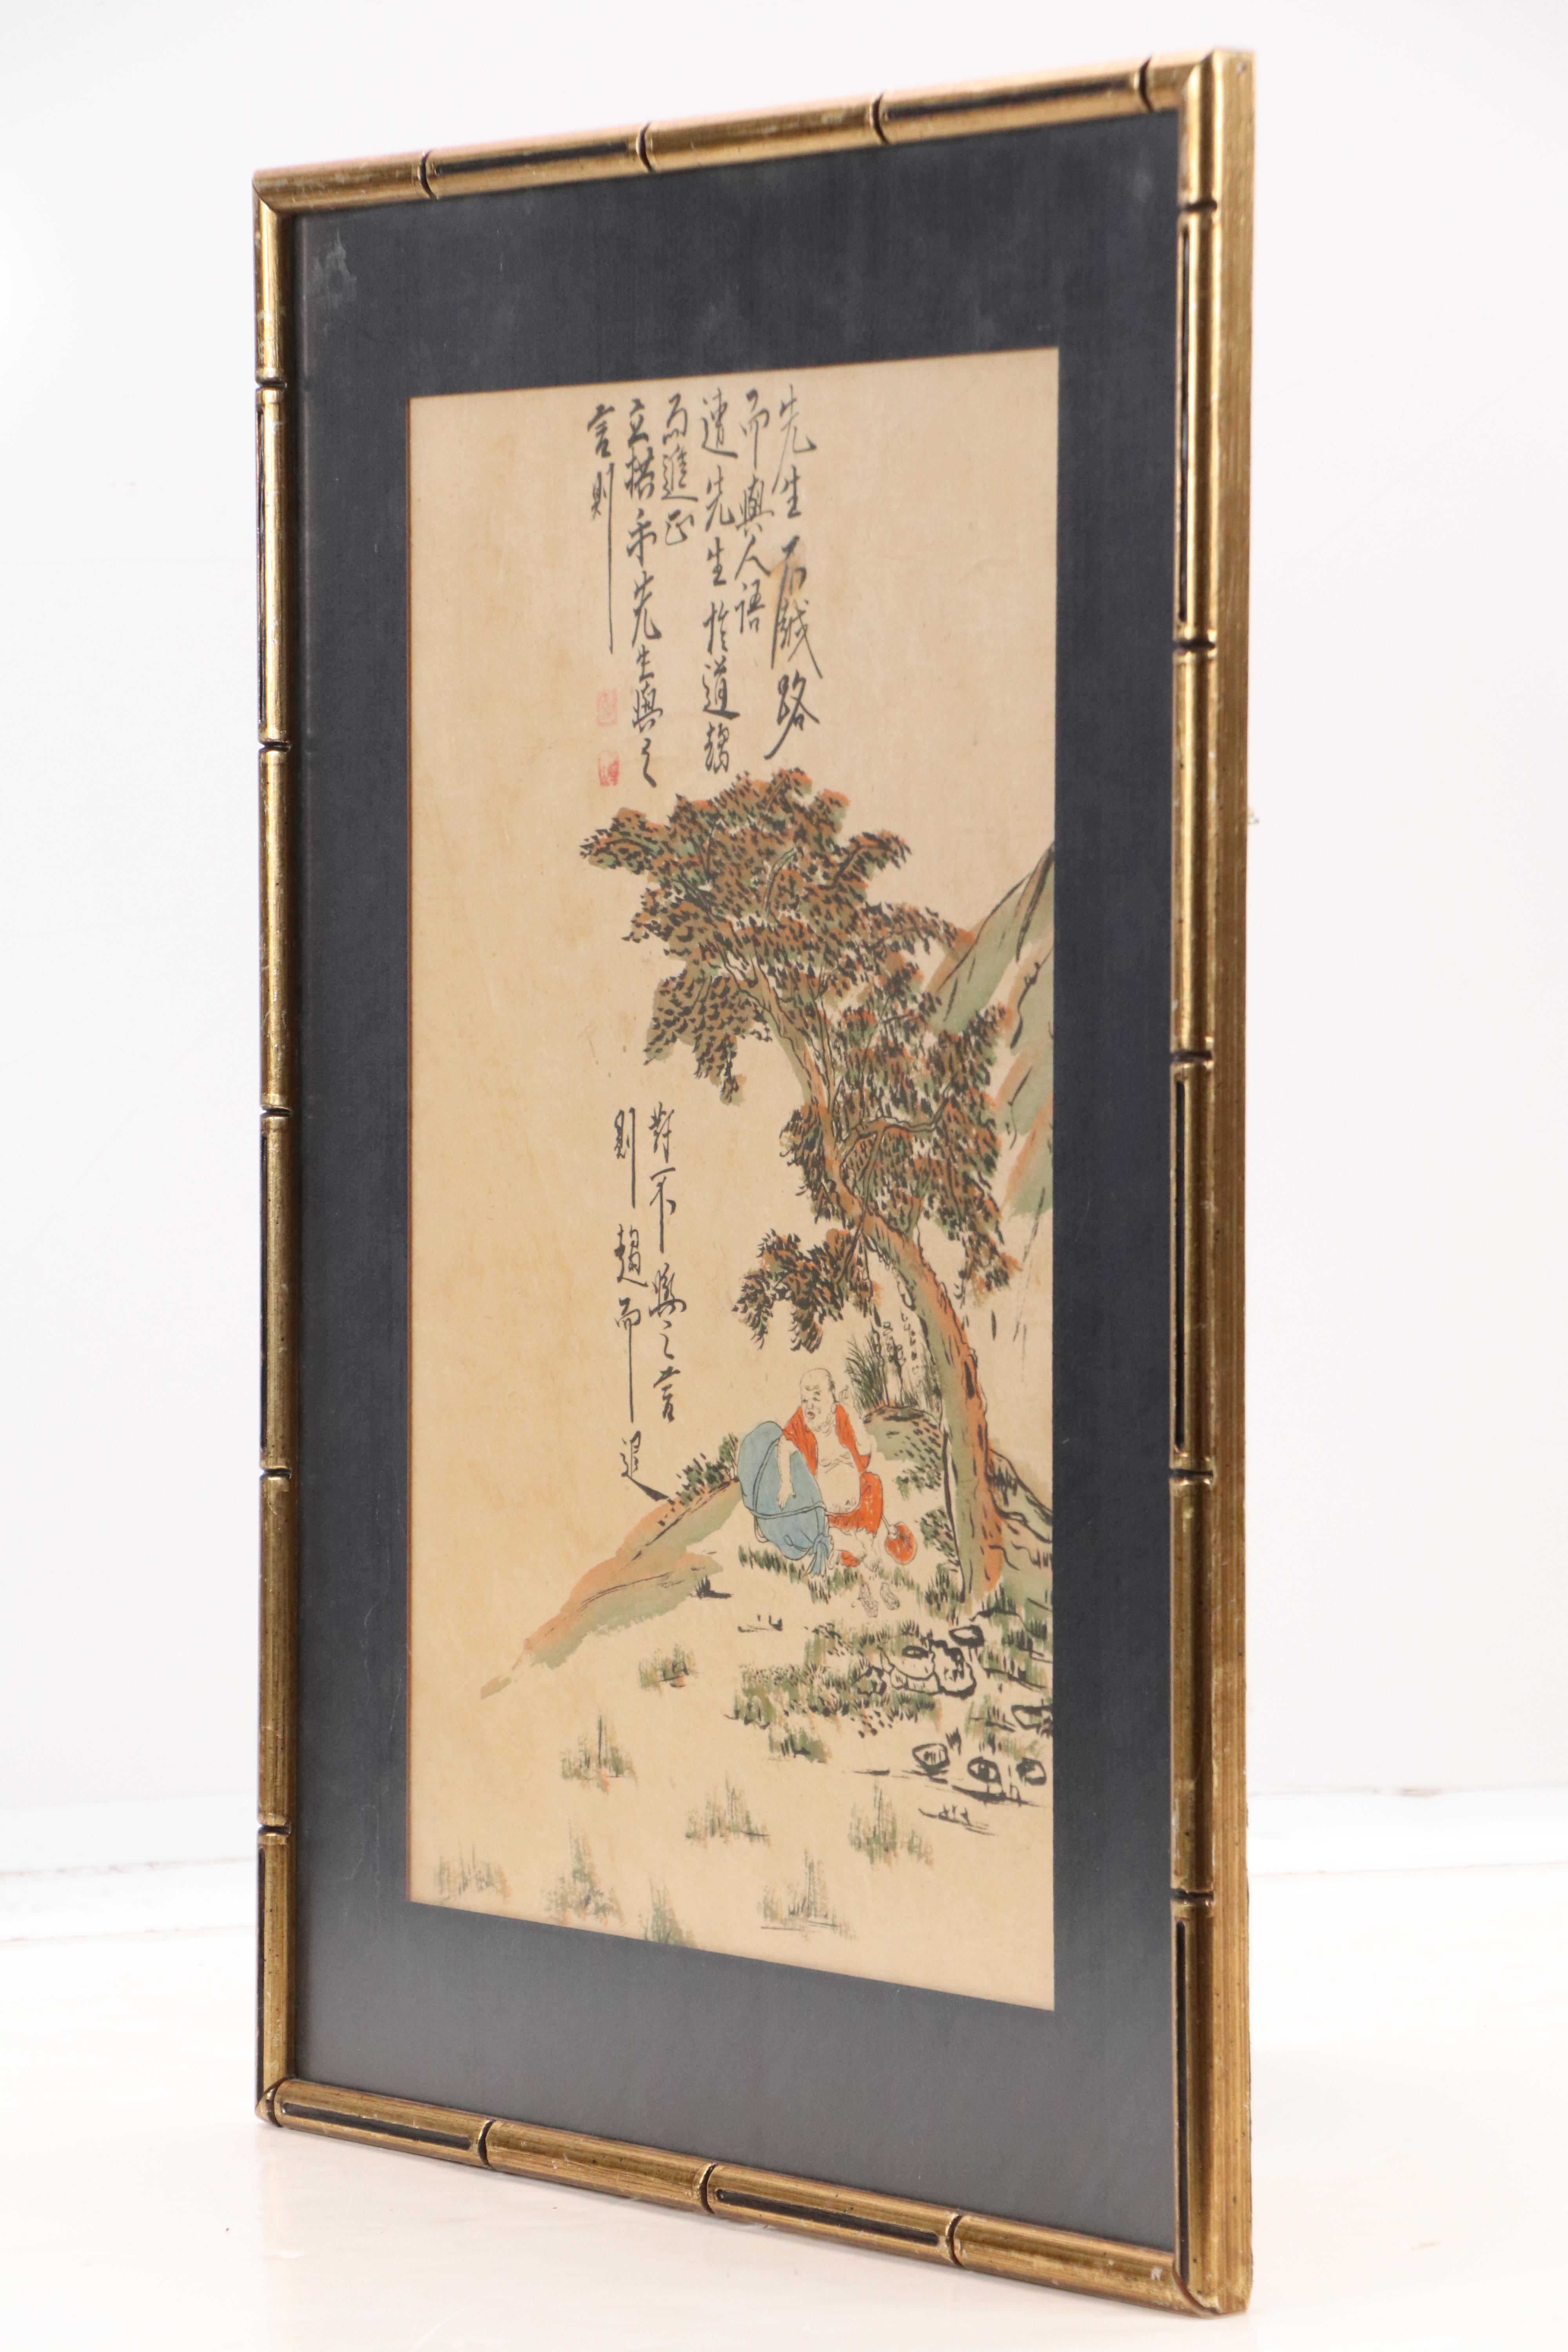 先生不越路
而與人語
遭先生於道趨
而進正
立拱手先生與之
言則
對不與之言
則趨而退